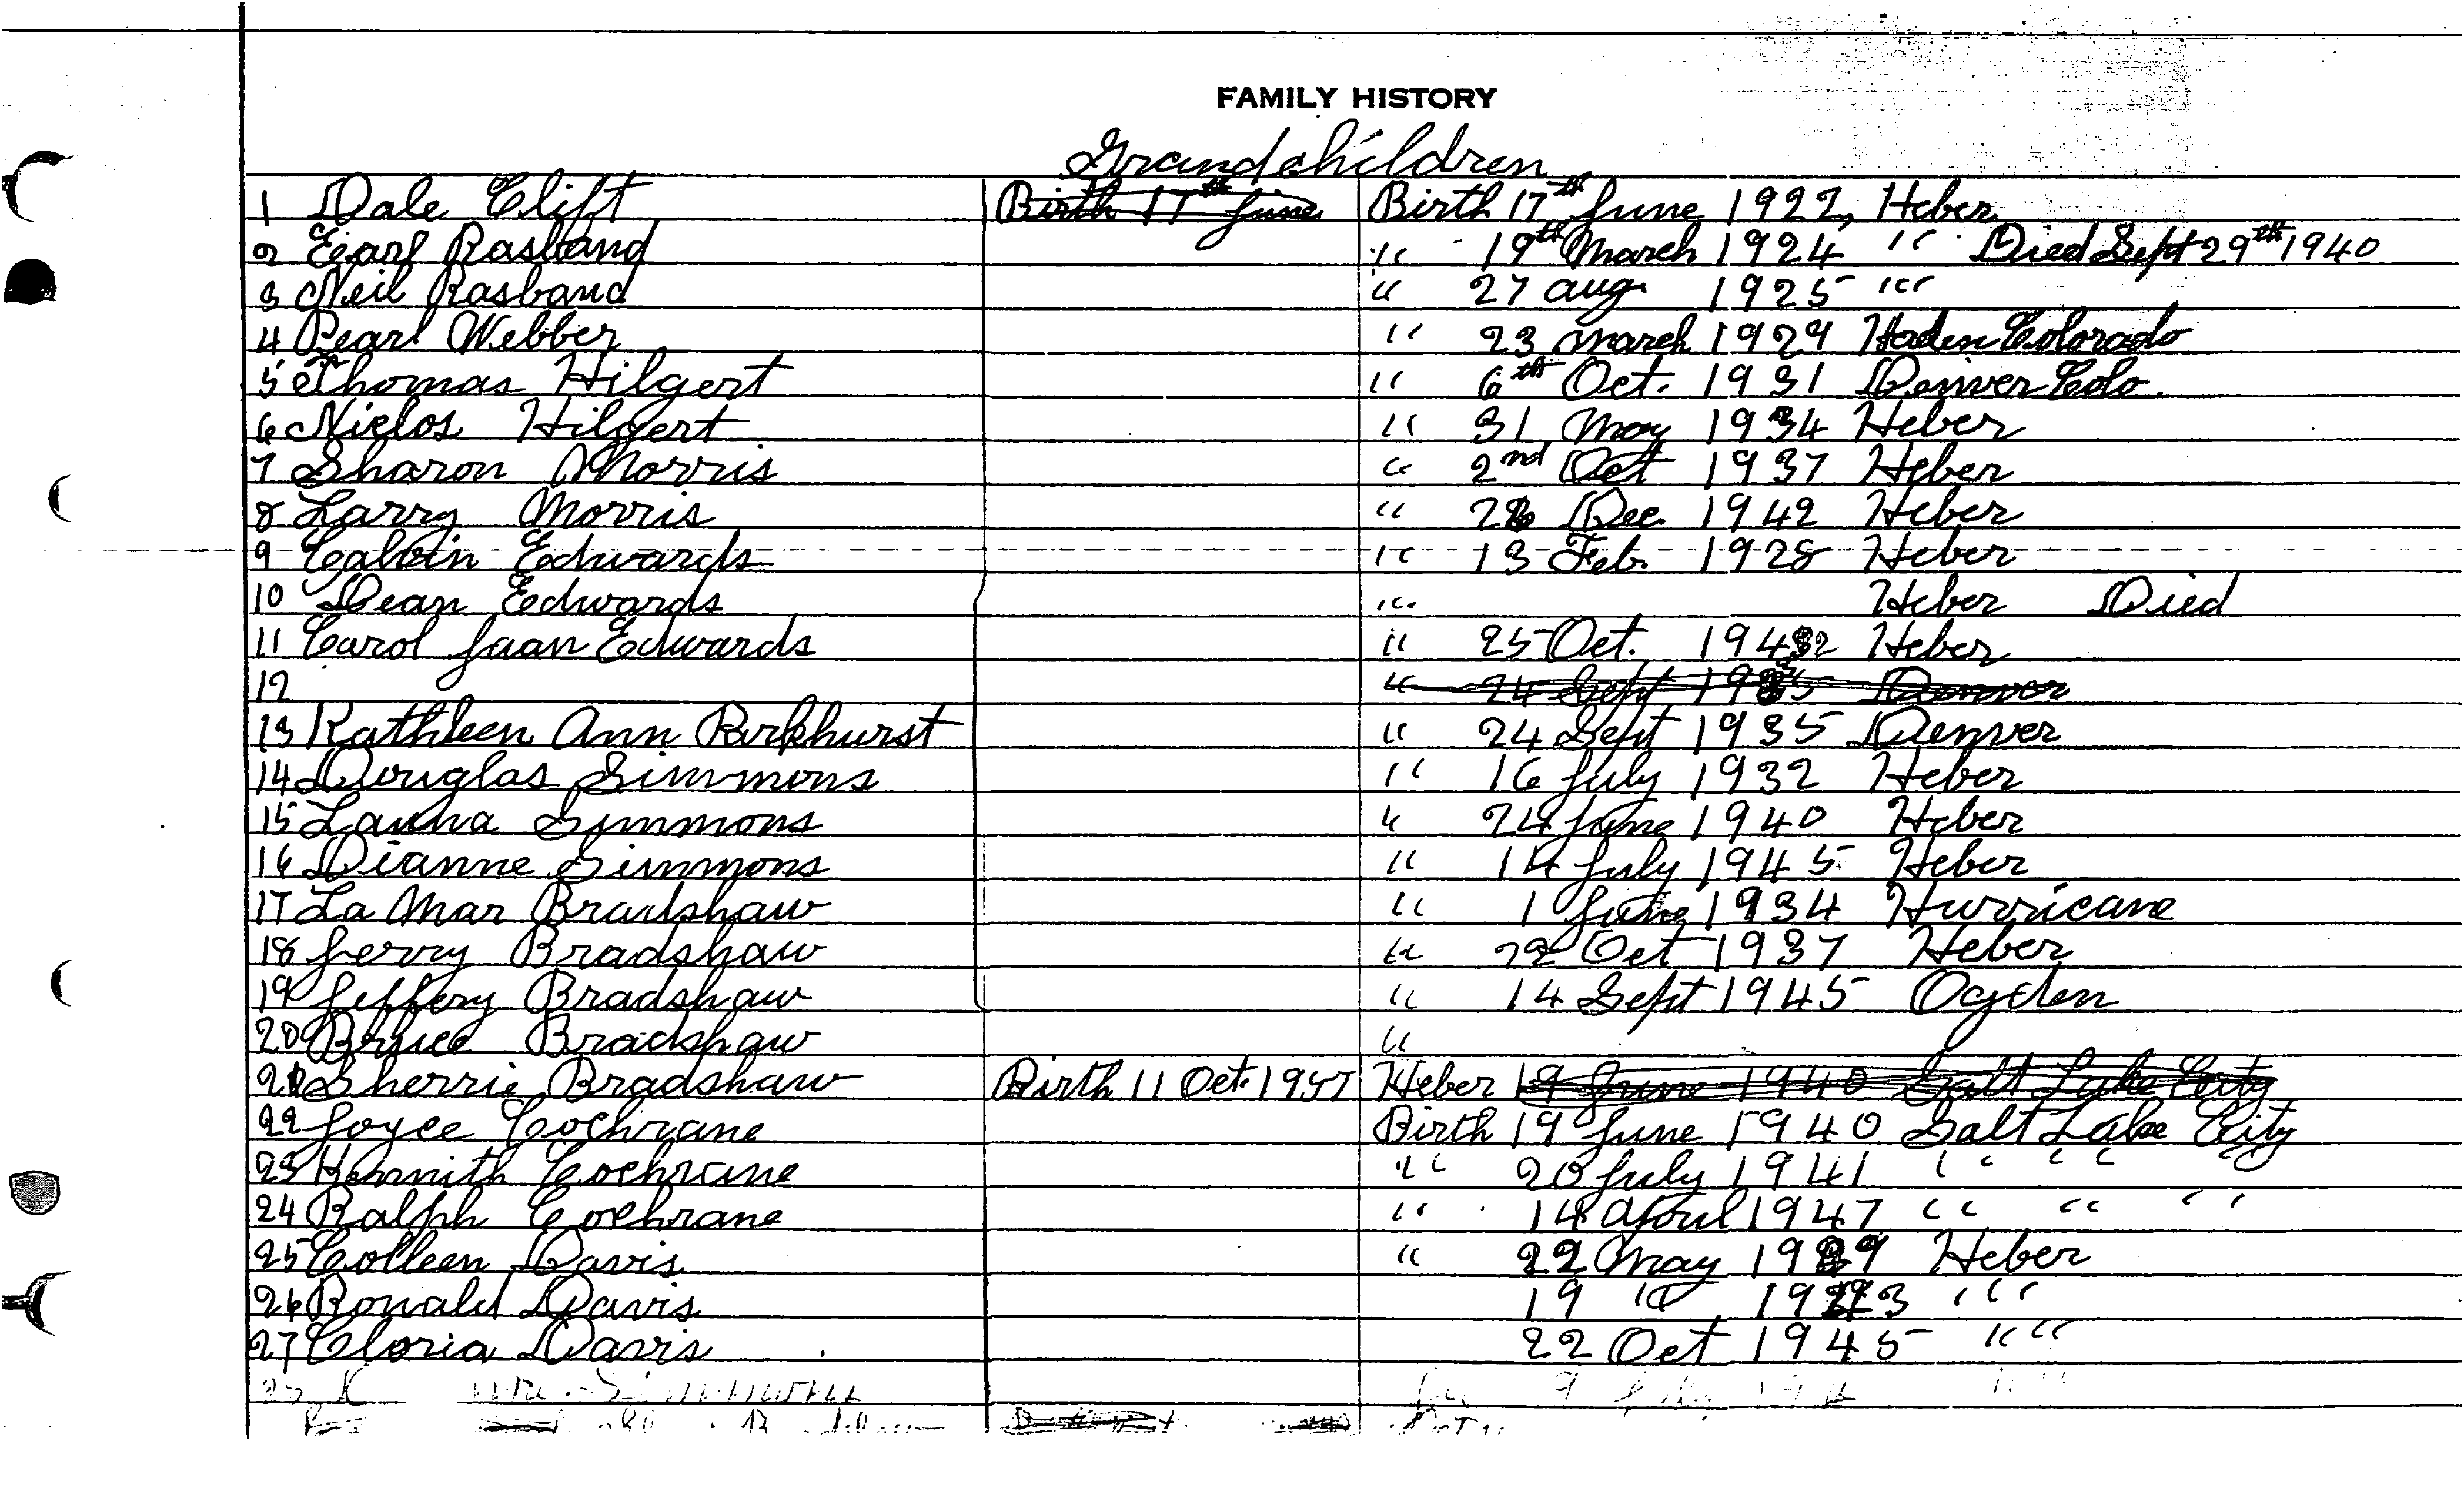 FAMILY HISTORY
Grandchildren
1 Dale Clift Birth 17th June Birth 17th June 1922, Heber
2 Earl Rasband " 19th March 1924 " Died Sept 29th 1940
3 Neil Rasband " 27 aug. 1925 "
4 Pearl Webber " 23 March 1929 Haden Colorado
5 Thomas Hilgert " 6th Oct. 1931 Denver Colo.
6 Niclos Hilgert " 31 May 1934 Heber
7 Sharon Morris " 2nd Oct 1937 Heber
8 Larry Morris " Dec. 1942 Heber
9 Calvin Edwards " 13 Feb. 1928 Heber
10 Dean Edwards " Heber Died
11 Carol Jaan Edwards " 25 Oct. Heber
12 " 24 Sept 1935 Denver
13 Kathleen Ann Parkhurst " 24 Sept 1935 Denver
14 Douglas Simmons " 16 July 1932 Heber
15 Simmons " 24 June 1940 Heber
16 Dianne Simmons " 14 July 1945 Heber
17 La Mar Bradshaw " 1 June 1934 Hurricane
18 Jerry Bradshaw " 22 Oct 1937 Heber
19 Jeffery Bradshaw " 14 Sept 1945 Ogden
20 Bruce Bradshaw "
21 Sherrie Bradshaw Birth 11 Oct. 1947 Heber 19 June 1940 Salt Lake City
22 Joyce Cochrane Birth 19 June 1940 Salt Lake City
23 Kennith Cochrane " 20 July 1941 " " "
24 Ralph Cochrane " 14 April 1947 " " "
25 Colleen Davis " 22 May Heber
26 Ronald Davis 19 " "
27 Cloria Davis 22 Oct 1945 " "